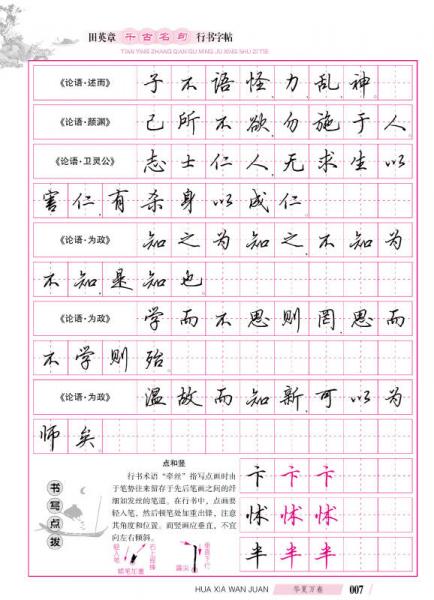 田英章 千古名句 行书字帖
TIAN YING ZHANG QIAN GU MING JU XING SHU ZI TIE
《论语·述而》 子不语怪、力、乱、神。
《论语·颜渊》 己所不欲,勿施于人。
《论语·卫灵公》 志士仁人,无求生以
害仁,有杀身以成仁。
《论语·为政》 知之为知之,不知为
不知,是知也。
《论语·为政》 学而不思则罔,思而
不学则殆。
《论语·为政》 温故而知新,可以为
师矣。
书写点拨
点和竖
行书术语“牵丝”指写点画时由
于笔势往来留存于先后笔画之间的纤
细如发丝的笔道。在行书中,点画要
轻入笔,然后顿笔处加重出锋,注意
其角度和位置。而竖画应垂直,不宜
向左右倾斜。
轻入笔
右上提锋
顿笔加重
露尖
垂直下行
卞 卞 卞
怵 怵 怵
半 半 半
HUA XIA WAN JUAN 华夏万卷 007